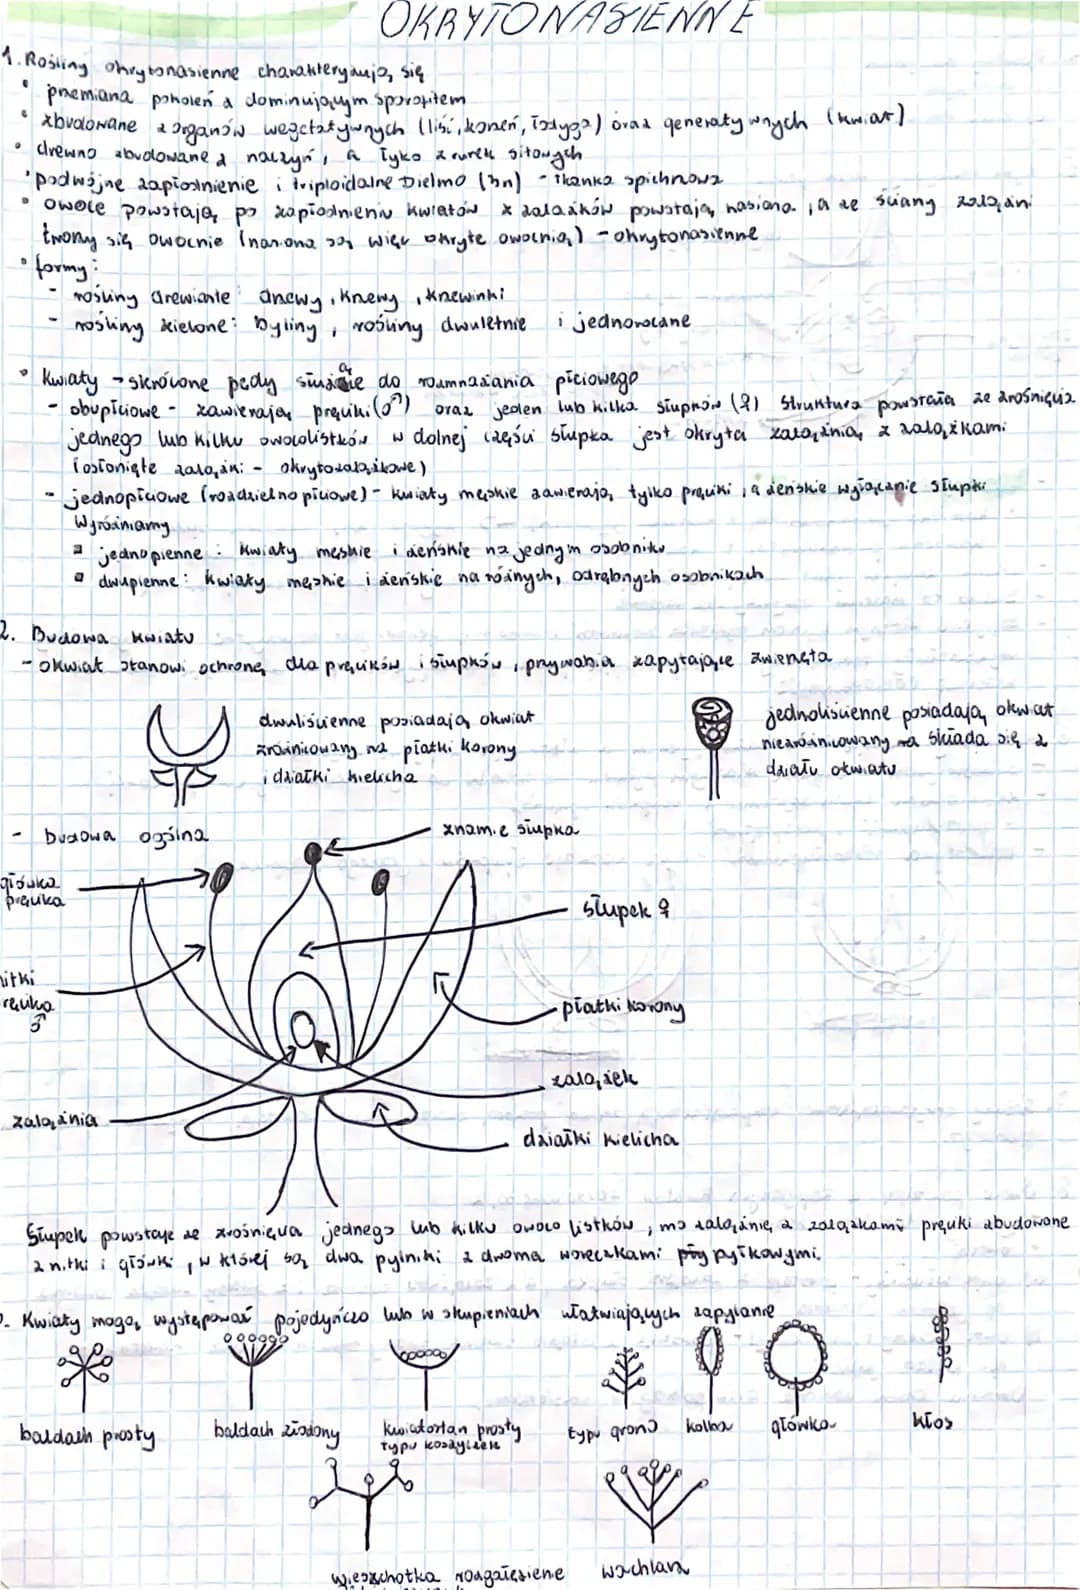 OKRYTONASIENNE
1. Rośliny okrytonasienne charakteryzują się
• przemiana pokoleń z dominującym sporofitem
• zbudowane z organów wegetatywnych (liść, korzeń, łodyga) oraz generatywnych (kwiat)
• drewno zbudowane z naczyń, a łyko z rurek sitowych
• podwójne zapłodnienie i triploidalne bielmo (3n) - tkanka spichrzowa
• owoce powstają po zapłodnieniu kwiatów z zalążków powstają nasiona, a ze ściany zalążni
tworzy się owocnie (nasiona są więc okryte owocnią) - okrytonasienne
• formy:
- rośliny drewiante: drzewy, krzewy, krzewinki
- rośliny zielone: byliny, rośliny dwuletnie i jednoroczne
• kwiaty → skrócone pędy służące do rozmnażania płciowego
- obupłciowe - zawierają pręciki (♂) oraz jeden lub kilka słupków (♀) struktura powstała ze zrośnięcia
jednego lub kilku owocolistków w dolnej części słupka jest okryta zalążnią z zalążkami
(osłonięte zalążki - okrytozalążkowe)
- jednopłciowe (rozdzielnopłciowe) - kwiaty męskie zawierają tylko pręciki, a żeńskie wyłącznie słupki
Wyróżniamy
▫ jednopienne: kwiaty męskie i żeńskie na jednym osobniku
▫ dwupienne: kwiaty męskie i żeńskie na różnych, odrębnych osobnikach
2. Budowa kwiatu
- okwiat stanowi ochronę dla pręcików i słupków, przywabia zapylające zwierzęta
dwuliścienne posiadają okwiat
zróżnicowany na płatki korony
i działki kielicha
jednoliścienne posiadają okwiat
niezróżnicowany na składa się z
działu okwiatu
- budowa ogólna
znamie słupka
główka
pręcika
słupek ♀
nitki
pręcika
♂
płatki korony
zalążek
zalążnia
działki kielicha
Słupek powstaje ze zrośnięcia jednego lub kilku owoco listków, ma zalążnię z zalążkami pręciki zbudowane
z nitki i główki, w której są dwa pylniki z dwoma woreczkami pyłkowymi.
3. Kwiaty mogą występować pojedyńczo lub w skupieniach ułatwiających zapylanie
baldach prosty
baldach złożony
kwiatostan prosty
typu koszyczek
typu grono
kolba
główka
kłos
wieszchotka rozgałęsiene
wachlarz